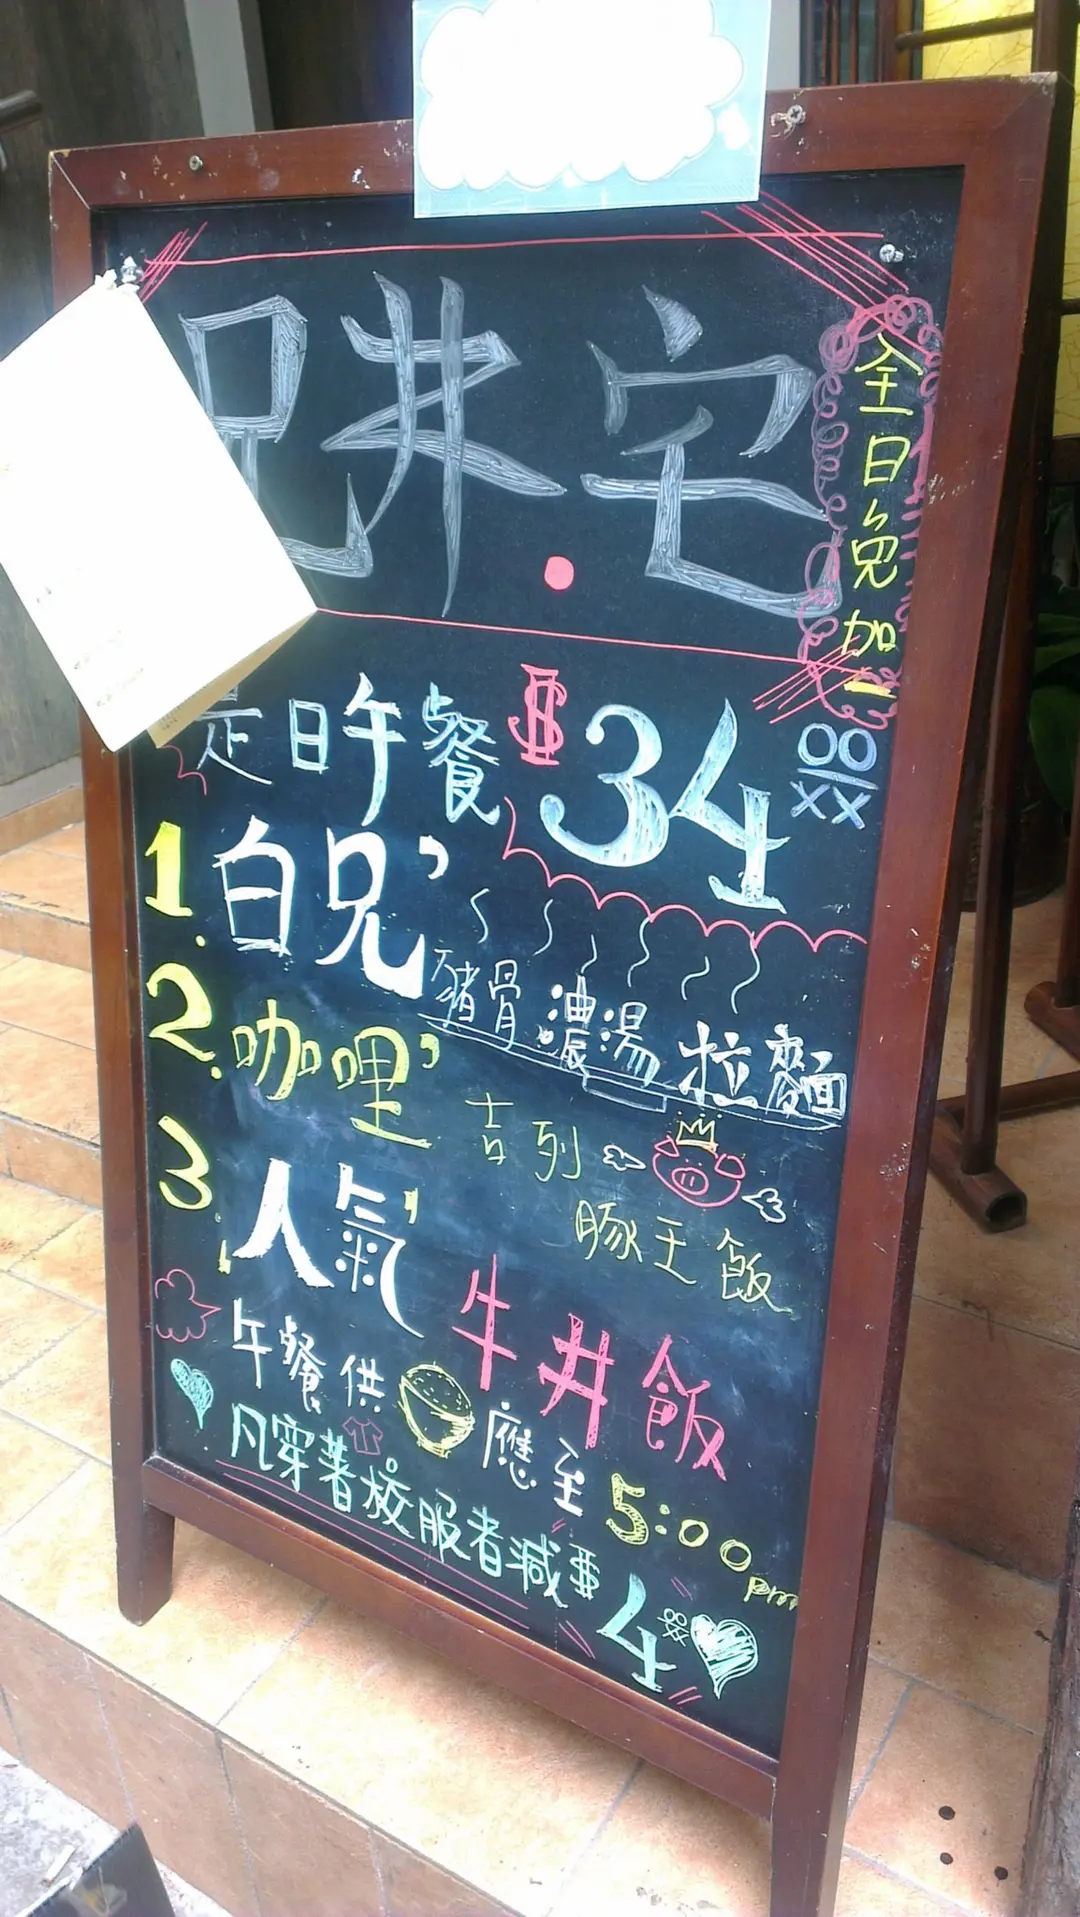 兄丼宅
全日免加一
是日午餐 $34
1. 白兄'
豬骨濃湯拉麵
2. 咖哩'
吉列
豚王飯
3 人氣'
牛丼飯
午餐供應至 5:00 pm
凡穿著校服者減$4